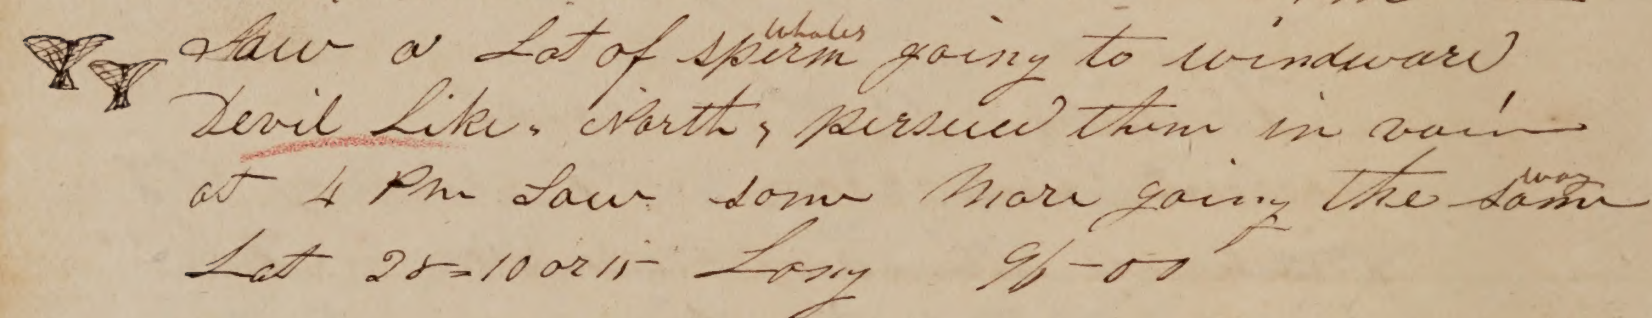 Saw a Lot of sperm Whales going to windward
Devil Like, North, persued them in vain
at 4 Pm Saw some More going the same way
Lat 28=10 or 15 Long 96-00